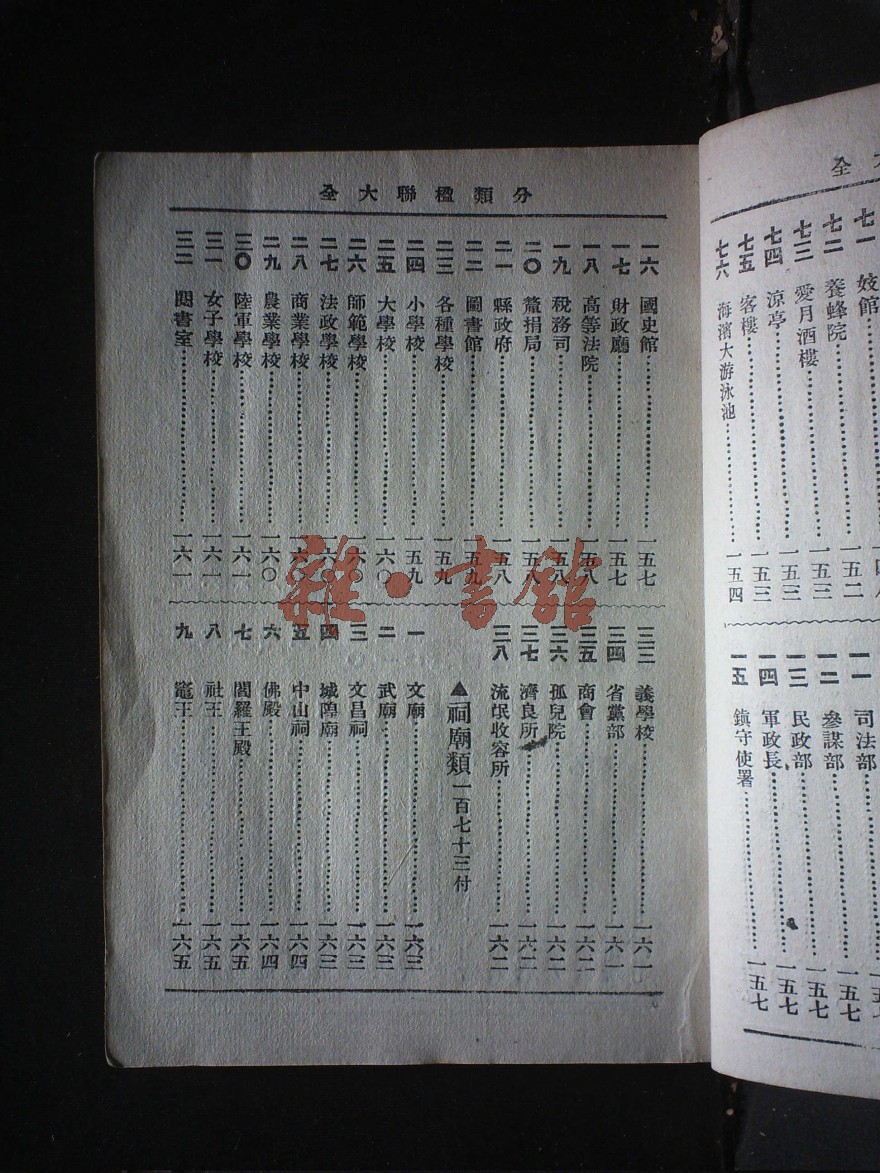 分類楹聯大全
一六 國史館 一五七
一七 財政廳 一五七
一八 高等法院 一五八
一九 稅務司 一五八
二〇 釐捐局 一五八
二一 縣政府 一五八
二二 圖書館 一五九
二三 各種學校 一五九
二四 小學校 一五九
二五 大學校 一六〇
二六 師範學校 一六〇
二七 法政學校 一六〇
二八 商業學校 一六〇
二九 農業學校 一六〇
三〇 陸軍學校 一六一
三一 女子學校 一六一
三二 閱書室 一六一
三三 義學校 一六一
三四 省黨部 一六一
三五 商會 一六二
三六 孤兒院 一六二
三七 濟良所 一六二
三八 流氓收容所 一六二
▲祠廟類一百七十三付
一 文廟 一六三
二 武廟 一六三
三 文昌祠 一六三
四 城隍廟 一六三
五 中山祠 一六四
六 佛殿 一六四
七 閻羅王殿 一六五
八 社王 一六五
九 竈王 一六五
雜·書館
全
七一 妓館
七二 養蜂院 一五二
七三 愛月酒樓 一五三
七四 涼亭 一五三
七五 客樓 一五三
七六 海濱大游泳池 一五四
一一 司法部 一五七
一二 參謀部 一五七
一三 民政部 一五七
一四 軍政長 一五七
一五 鎮守使署 一五七